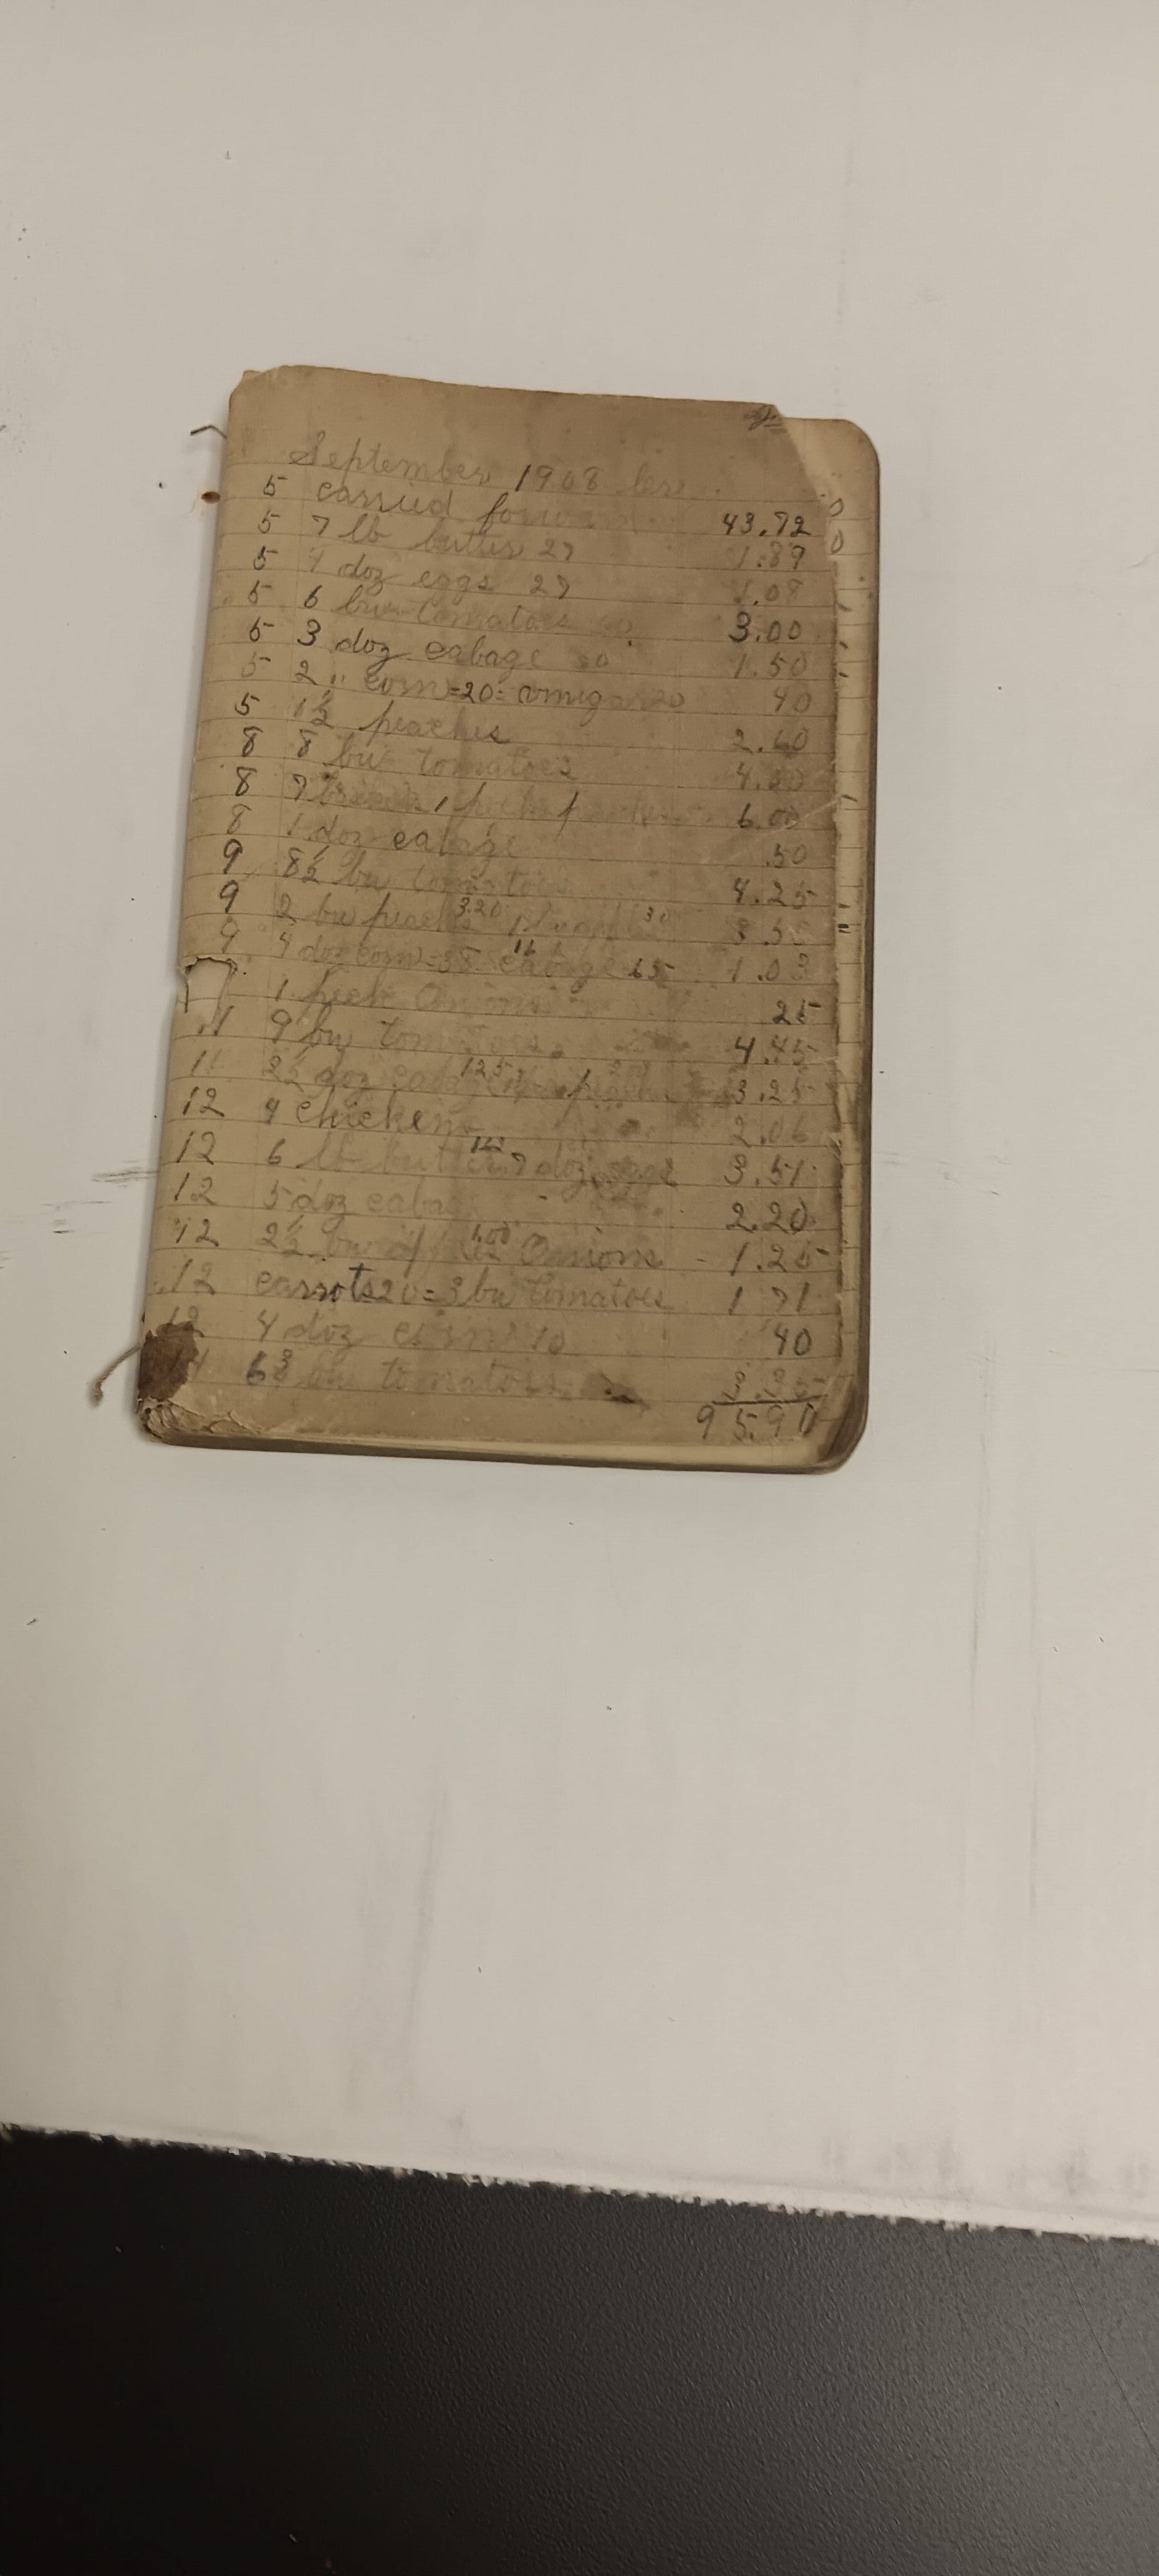 September 1908
5 carried forward 43.72
5 7 lb butter 27 1.89
5 4 doz eggs 27 1.08
5 6 bu tomatoes 3.00
5 3 doz cabage 50 1.50
5 2 " corn=20= 20 40
5 1½ peaches 2.60
8 8 bu tomatoes 4.00
8 7 1 6.00
8 1 doz cabage .50
9 8½ bu tomatoes 4.25
9 2 bu peaches 3.20 30 3.50
9 4 doz corn=38 16 cabage 65 1.03
1 peck Onions 25
11 9 bu tomatoes 4.45
11 2½ doz 1.25 3.25
12 4 chickens 2.06
12 6 lb butter 7 doz 3.51
12 5 doz 2.20
12 2½ bu 1.00 Onions 1.25
12 carrots 20=3 bu tomatoes 1 71
12 4 doz corn 10 40
6 bu tomatoes
95.90